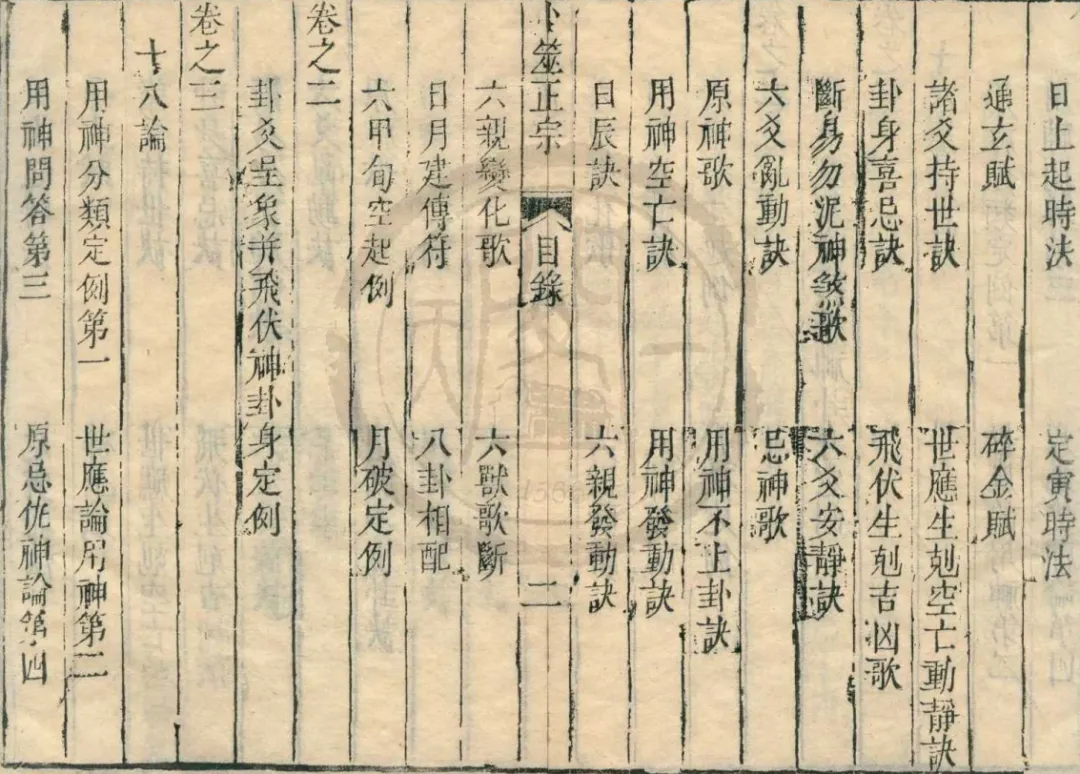 日上起時法 定寅時法
通玄賦 碎金賦
諸爻持世訣 世應生剋空亡動靜訣
卦身喜忌訣 飛伏生剋吉凶歌
斷易勿泥神煞歌 六爻安靜訣
六爻亂動訣 忌神歌
原神歌 用神不上卦訣
用神空亡訣 用神發動訣
日辰訣 六親發動訣
卜筮正宗 目錄 二
六親變化歌 六獸歌斷
日月建傳符 八卦相配
六甲旬空起例 月破定例
卷之二
卦爻呈象并飛伏神卦身定例
卷之三
十八論
用神分類定例第一 世應論用神第二
用神問答第三 原忌仇神論第四